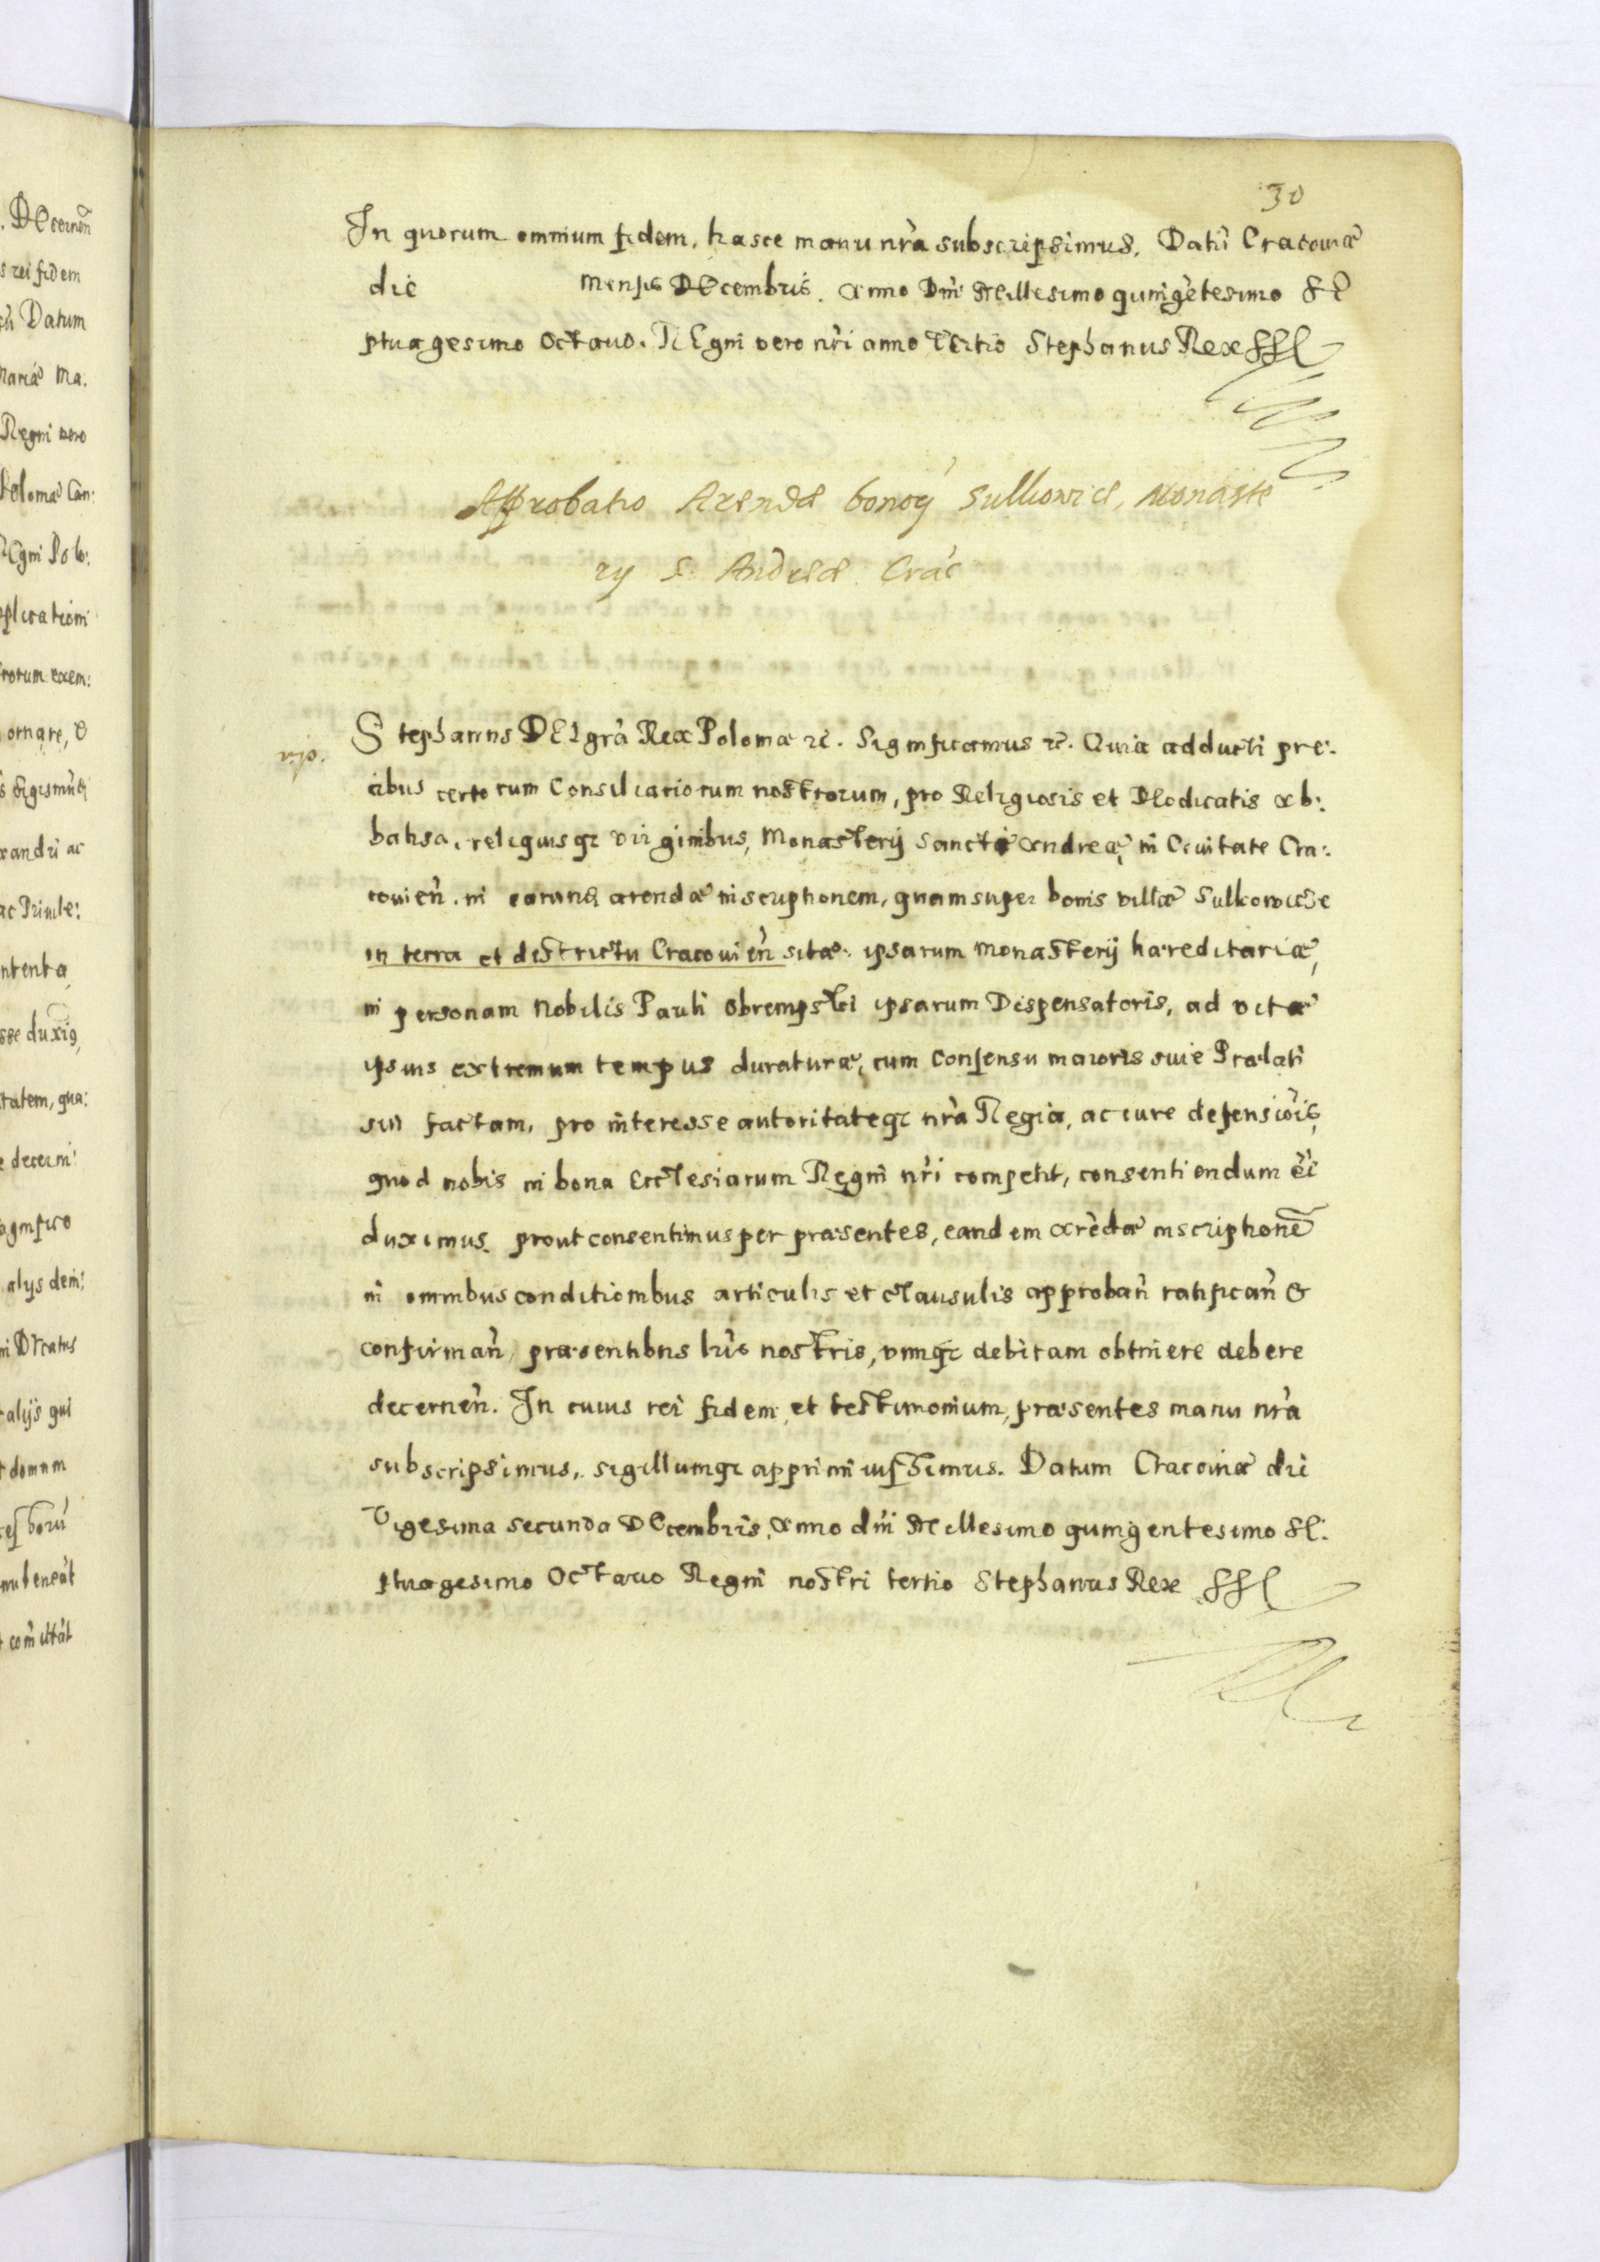 30
In quorum omnium fidem, hasce manu nr̃a subscripsimus. Datũ Cracoviæ
die Mensis DEcembris. Anno Dm̃ Millesimo quingẽtesimo SE
ptuagesimo Octavo. REgni vero nr̃i anno TErtio Stephanus Rex ssst
Approbatio Arendæ bonoꝝ Sulkowice, Monaste
ry S. Andreæ Crac̃
Stephanus DEI grã Rex Poloniæ ꝛc̃. Significamus ꝛc̃. Quia adducti pre:
cibus certorum Consiliariorum nostrorum, pro Religiosis et DEodicatis Ab:
batissa, reliquisqꝫ virginibus, Monasterij Sancti Andreæ, in Civitate Cra:
covien̄. in earund. arendæ inscriptionem, quam super bonis villæ Sulkowicze
in terra et districtu Cracovien̄ sitæ: ipsarum Monasterij hæreditariæ,
in personam Nobilis Pauli Obrempski ipsarum Dispensatoris, ad vitæ
ipsius extremum tempus duraturæ, cum Consensu maioris suie Prælati
sui factam, pro interesse autoritateqꝫ nr̃a Regia, ac iure defensiõis,
quod nobis in bona Ecclesiarum Regni nr̃i competit, consentiendum ẽẽ
duximus. prout consentimus per præsentes, eandem arẽdæ inscriptionẽ
in omnibus conditionibus articulis et clausulis approban̄ ratifican̄ &
confirman̄, præsentibus lr̃is nostris, vimqꝫ debitam obtinere debere
decernen̄. In cuius rei fidem et testimonium, præsentes manu nr̃a
subscripsimus, sigillumqꝫ apprimi iussimus. Datum Cracoviæ die
Vigesima secunda DEcembris, Anno dñi Millesimo quingentesimo SE:
ptuagesimo Octavo Regni nostri tertio Stephanus Rex ssst